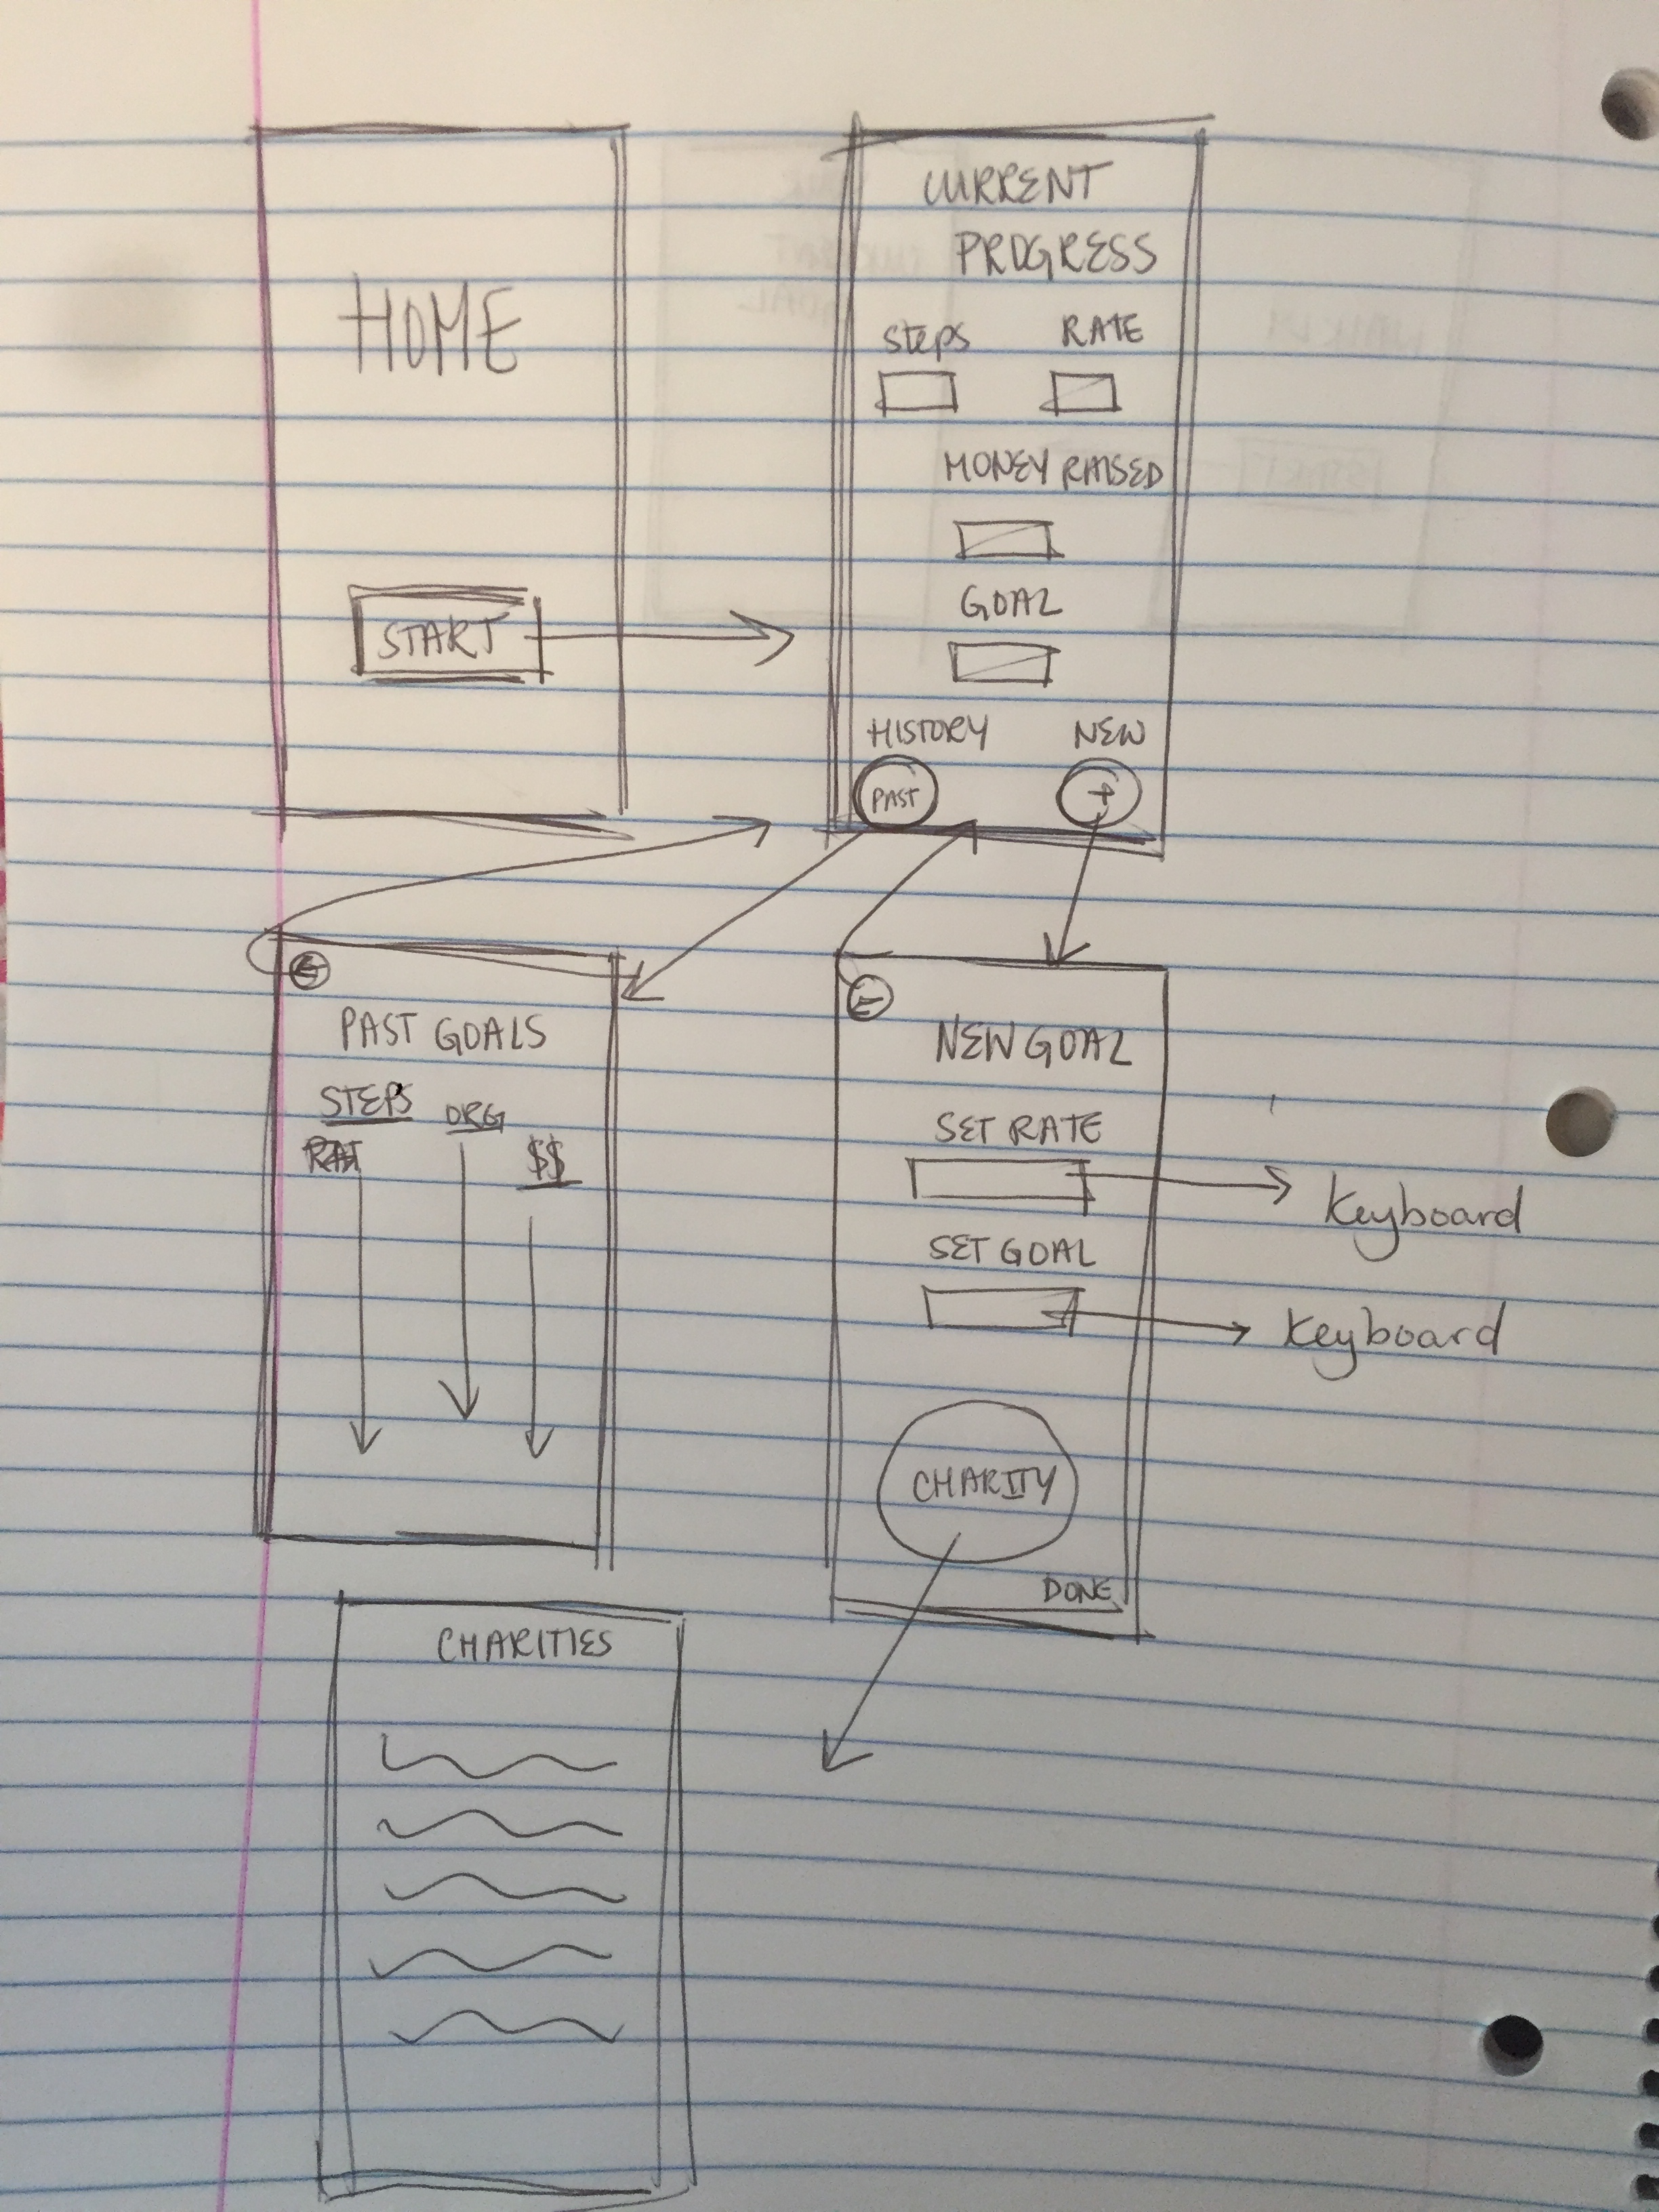 HOME
START
CURRENT
PROGRESS
Steps RATE
MONEY RAISED
GOAL
HISTORY NEW
PAST +
PAST GOALS
STEPS ORG $$
NEW GOAL
SET RATE
Keyboard
SET GOAL
Keyboard
CHARITY
DONE
CHARITIES